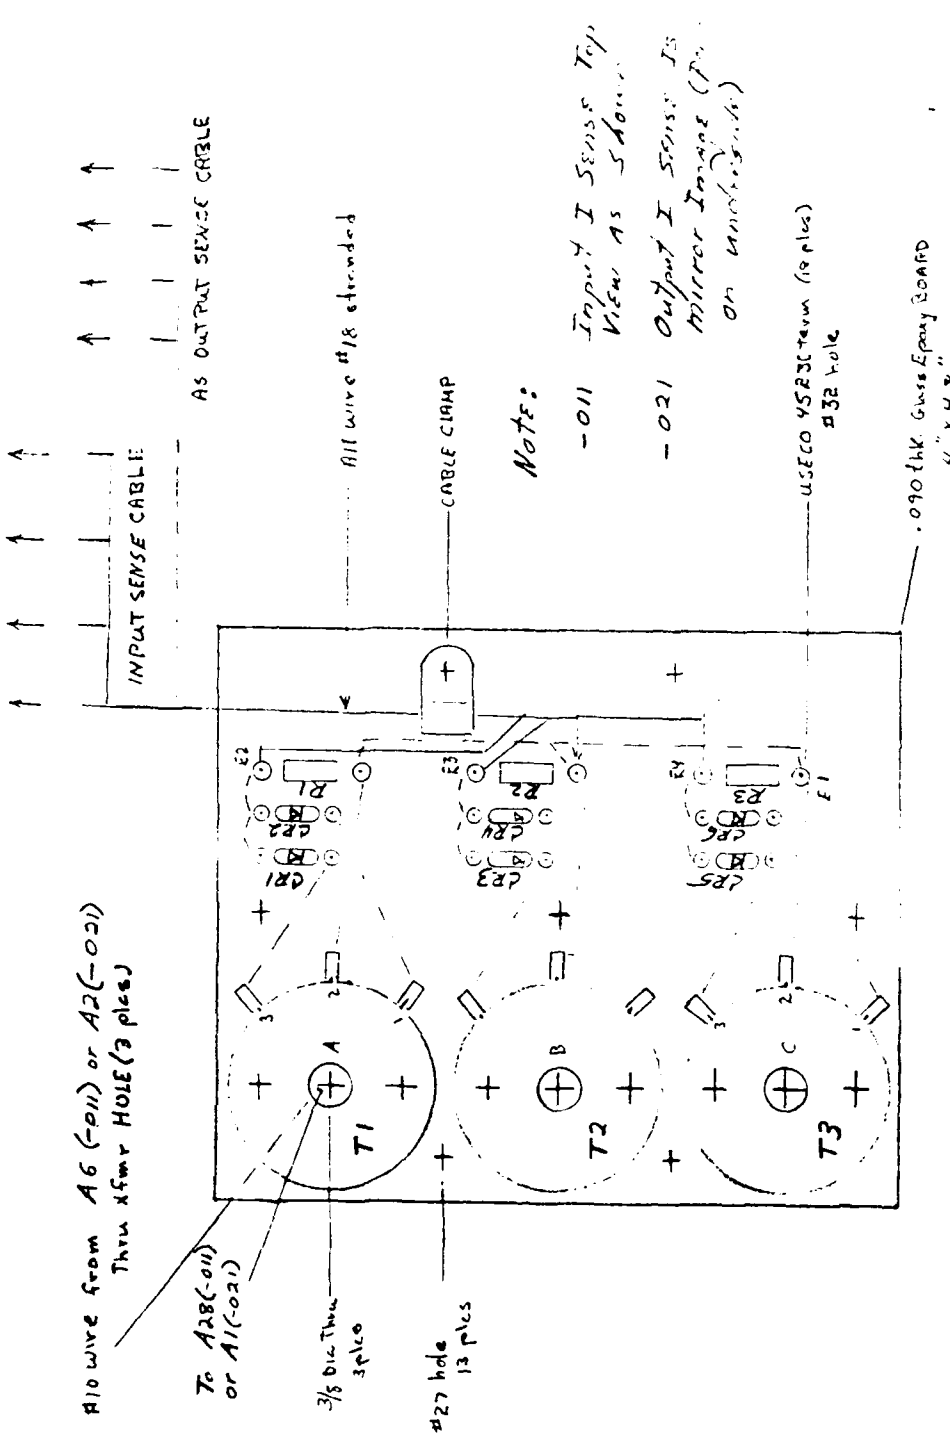 #10 wire from A6 (-011) or A2 (-021)
Thru xfmr HOLE (3 plcs)
To A28 (-011)
or A1 (-021)
3/8 Dia Thru
3 plcs
#27 hole
13 plcs
INPUT SENSE CABLE
AS OUTPUT SENSE CABLE
All wire #18 stranded
CABLE CLAMP
NOTE:
-011 Input I Sense Top
View As Shown
-021 Output I Sense Is
Mirror Image
on underside)
USECO 4523C term (18 plcs)
#32 hole
.090 thk. Glass Epoxy BOARD
E2
R1
CR2
CR1
3
2
A
T1
E3
R2
CR4
CR3
B
T2
E4
R3
E1
CR6
CR5
3
2
C
T3